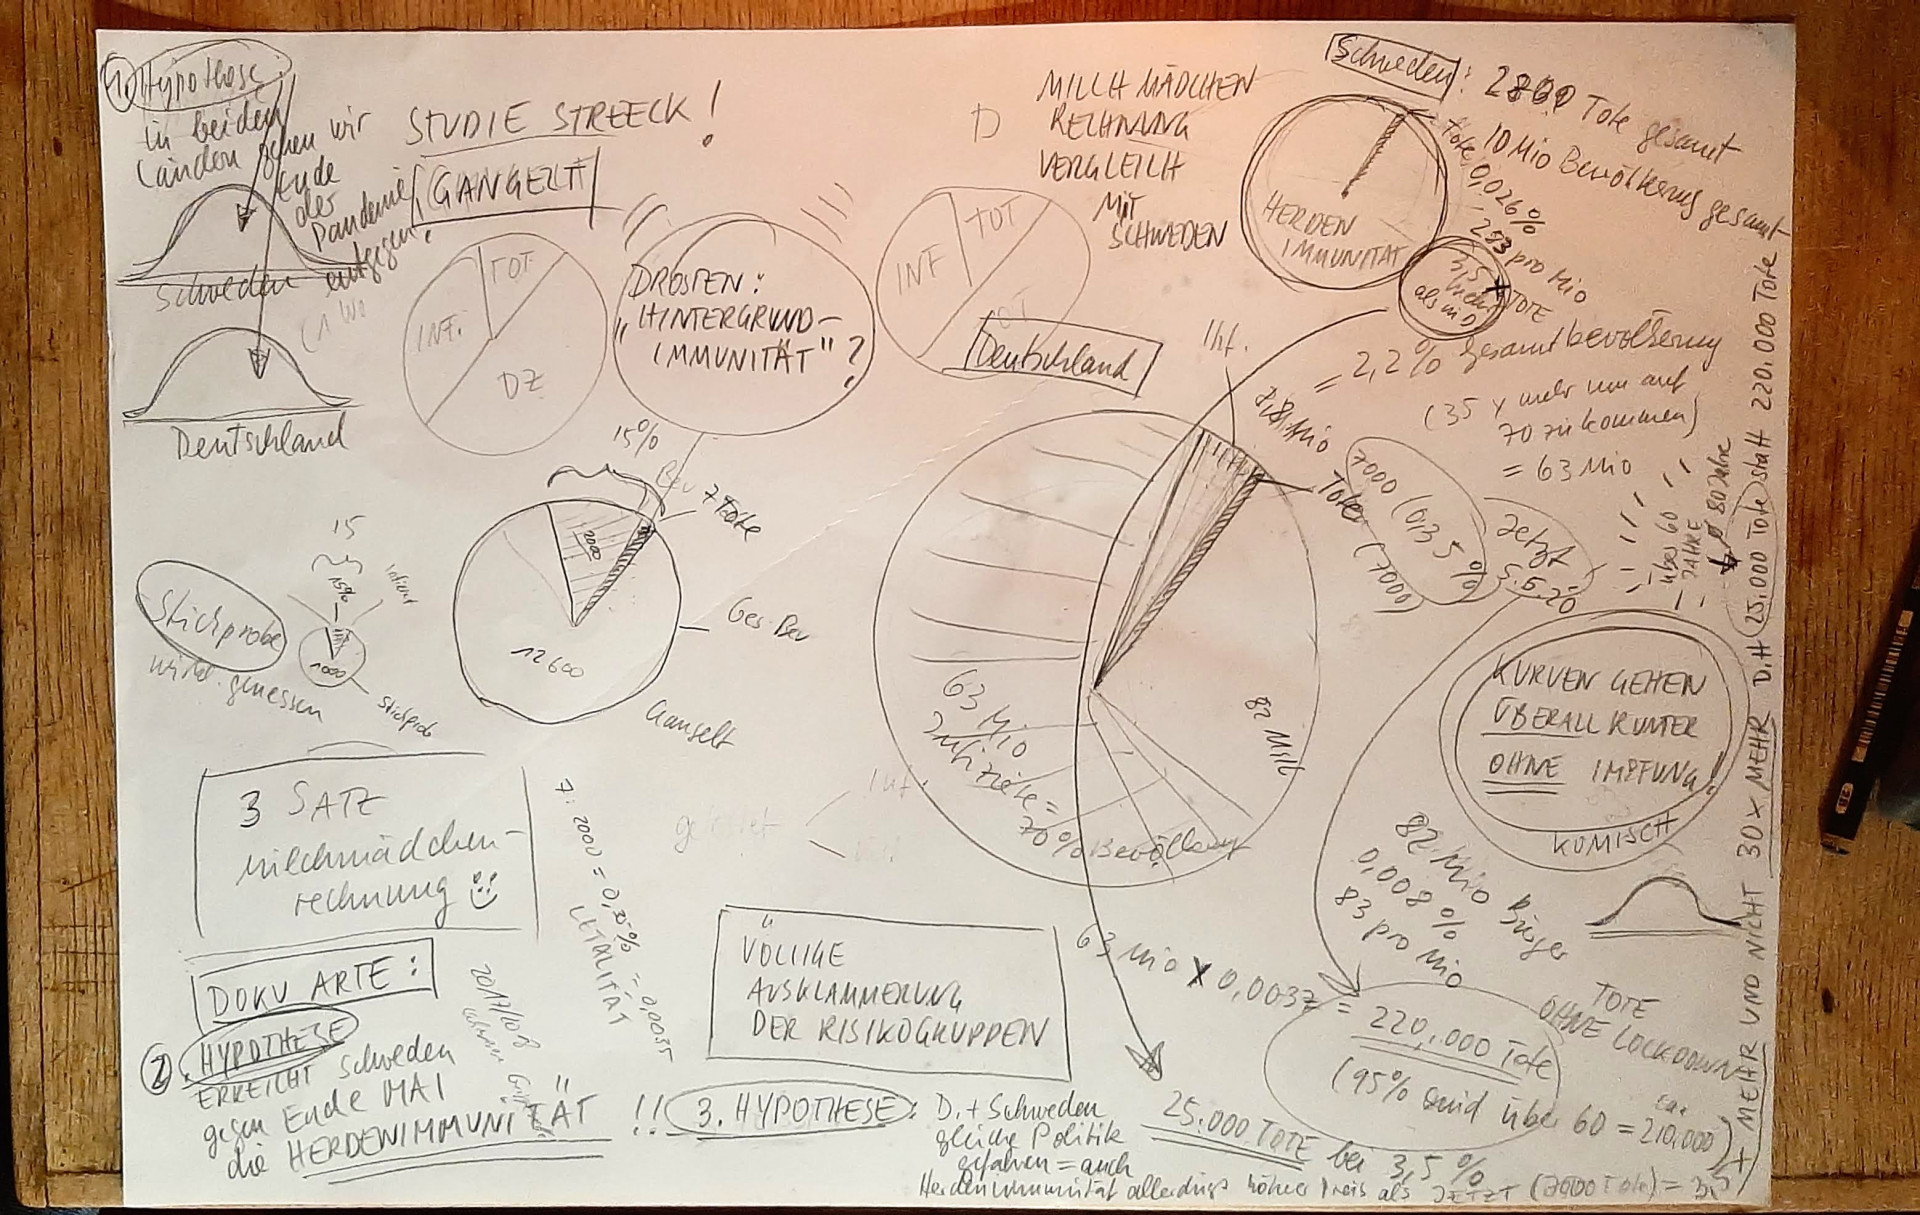 1. Hypothese
in beiden
Ländern gehen wir
Ende
der
Pandemie
entgegen
Schweden
Deutschland
STUDIE STREECK!
GANGELT
INF.
TOT
DZ
DROSTEN:
"HINTERGRUND-
IMMUNITÄT"?
INF
TOT
MILCH MÄDCHEN
RECHNUNG
VERGLEICH
MIT
SCHWEDEN
Schweden:
Tote gesamt
10 Mio Bevölkerung gesamt
Tote 0,026%
283 pro Mio
HERDEN
IMMUNITÄT
3,5 x
mehr TOTE
als in D
Deutschland
Inf.
= 2,2% Gesamtbevölkerung
(35 x mehr um auf
70 zu kommen)
= 63 Mio
Tote
7000 (0,35%)
(7000)
Jetzt
5.5.20
über 60
JAHRE
ø 80 Jahre
15%
Bev
7 Tote
2000
12600
Ges. Bev
Gangelt
15
15%
1000
Stichprobe
wird gemessen
Stichprobe
63 Mio
Infizierte =
70% Bevölkerung
82 Mill
KURVEN GEHEN
ÜBERALL RUNTER
OHNE IMPFUNG!
KOMISCH
3 SATZ
milchmädchen-
rechnung
7:2000 = 0,35% = 0,0035
LETALITÄT
getestet
Inf.
DOKU ARTE:
2017/018
2. HYPOTHESE
ERREICHT Schweden
gegen Ende MAI
die HERDENIMMUNITÄT !!
VÖLLIGE
AUSKLAMMERUNG
DER RISIKOGRUPPEN
82 Mio Bürger
0,008 %
83 pro Mio
63 Mio x 0,0037 = 220.000 Tote
TOTE
OHNE LOCKDOWN
(95% sind über 60 = ca. 210.000)
3. HYPOTHESE: D. + Schweden
gleiche Politik
gefahren = auch
Herdenimmunität allerdings höherer Preis als JETZT (7000 Tote)
25.000 TOTE bei 3,5 %
MEHR UND NICHT 30 x MEHR D.H 25.000 Tote statt 220.000 Tote